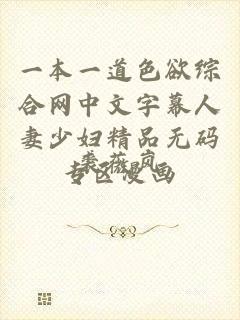 一本一道色欲综
合网中文字幕人
妻少妇精品无码
专区漫画
裴薇岚